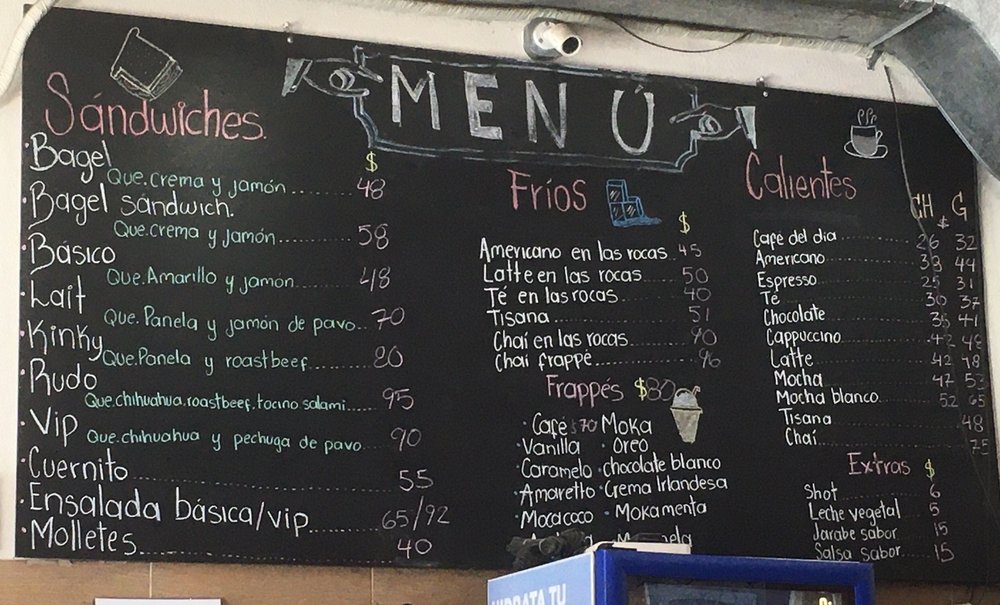 MENÚ
Sándwiches.
$
•Bagel
Que.crema y jamón 48
•Bagel sándwich.
Que.crema y jamón 58
•Básico
Que.Amarillo y jamón 48
•Lait
Que.Panela y jamón de pavo 70
•Kinky
Que.Panela y roastbeef 80
•Rudo
Que.chihuahua,roastbeef,tocino,salami 95
•Vip
Que.chihuahua y pechuga de pavo 90
•Cuernito 55
•Ensalada básica/vip 65/92
•Molletes 40
Fríos
$
Americano en las rocas 45
Latte en las rocas 50
Té en las rocas 40
Tisana 51
Chai en las rocas 90
Chai frappé 96
Frappés $80
•Café $70 •Moka
•Vanilla •Oreo
•Caramelo •chocolate blanco
•Amaretto •Crema Irlandesa
•Mocacoco •Mokamenta
Calientes
CH $ G
Café del día 26 32
Americano 38 44
Espresso 25 31
Té 36 37
Chocolate 35 41
Cappuccino 42 48
Latte 42 48
Mocha 47
Mocha blanco 52 65
Tisana 48
Chai 75
Extras $
Shot 6
Leche vegetal 5
Jarabe sabor 15
Salsa sabor 15
HIDRATA TU